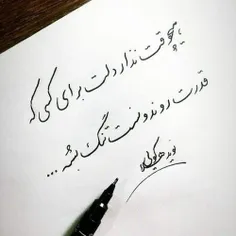 هیچوقت نذار دلت برای کسی که
قدرت رو ندونست تنگ بشه ...
نوید